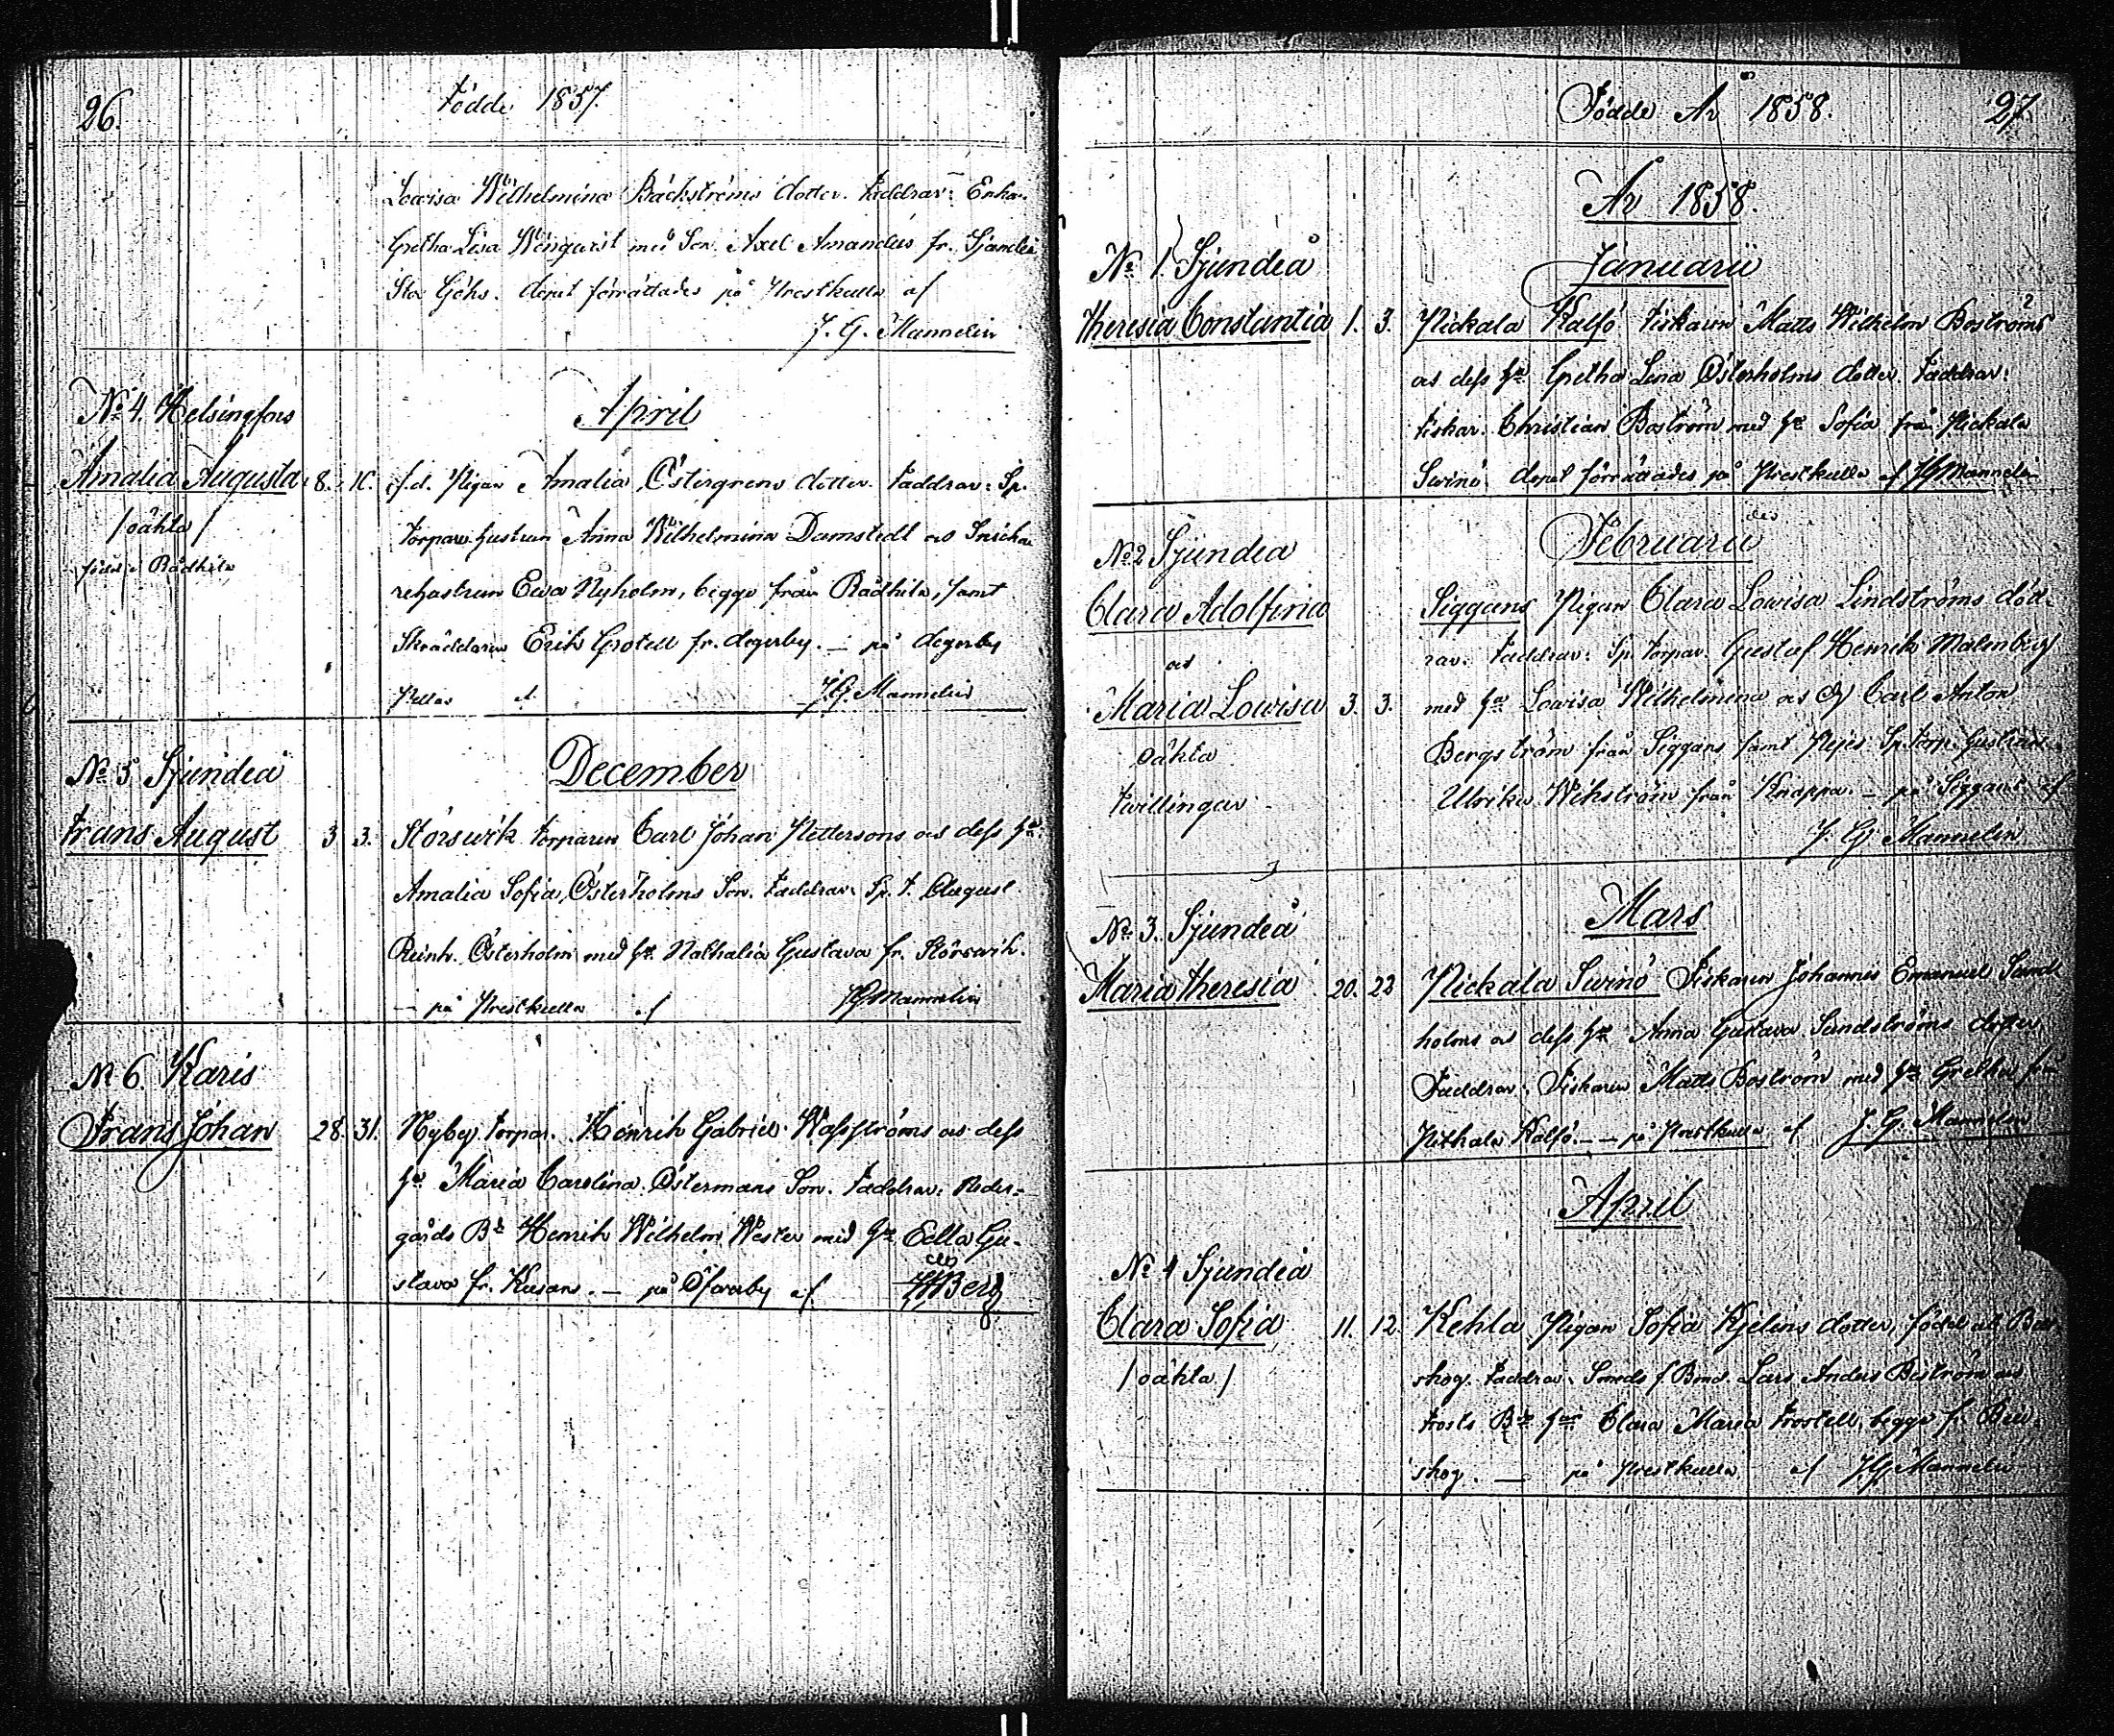 26.
Födde 1857.
Lowisa Wilhelmina Bäckströms dotter. Faddrar: Enkan
Gretha Lisa Wênqwist med Son Axel Amandus fr. Sjundeå
Stor Göhs. dopet förrättades på Prestkulla af
J. G. Mannelin
April
No 4. Helsingfors
Amalia Augusta 8. 10. f.d. Pigan Amalia Östergrens dotter. Faddrar: Sp.
/oäkta/
torpare hustrun Anna Wilhelmina Damstedt och Snicka
född i Rådkila
rehustrun Ewa Nyholm, begge från Rådkila, samt
Skräddaren Erik Grotell fr. degerby. — på degerby
Pellas af J. G. Mannelin
December
No 5 Sjundeå
Frans August 3. 3. Störswik torparen Carl Johan Pettersons och dess hu
Amalia Sofia Österholms Son. Faddrar: Sp. t. August
Reinh. Österholm med hu Nathalia Gustava fr. Störswik.
— på Prestkulla af JGMannelin
No 6. Karis
Frans Johan 28. 31. Nyby, torpar. Henrik Gabriel Wassströms och dess
hu Maria Carolina Östermans Son. Faddrar: Neder-
gårds Bd Henrik Wilhelm Wester med hu Gu-
stava fr. — på af Berg
Födde År 1858. 27.
År 1858.
Januarii
No 1. Sjundeå
Theresia Constantia 1. 3. Pickala Kalfö Fiskaren Matts Wilhelm Boströms
och dess hu Gretha Lena Österholms dotter. Faddrar:
Fiskar. Christian Boström med hu Sofia från Pickala
Swinö. dopet förrättades på Prestkulla af JGMannelin
Februarii
No 2 Sjundeå
Clara Adolfina
Siggans Pigan Clara Lowisa Lindströms döt-
och
rar. Faddrar: Sp. torpar. Gustaf Henrik Malmberg
Maria Lowisa 3. 3. med hu Lowisa Wilhelmina och Carl Anton
oäkta
Bergström från Siggans samt Pejes Sp. torp. hustrun
twillingar
Ulrika Wikström från Knappa. — på Siggans af
J. G. Mannelin
Mars
No 3. Sjundeå
Maria Theresia 20. 22 Pickala Swinö Fiskaren Johannes Emanuel Sand
holms och dess hu Anna Gustava Sundströms dotter
Faddrar: Fiskaren Matts Boström med hu Gretha från
Pickala Kalfö. — på Prestkulla af J. G. Mannelin
April
No 4 Sjundeå
Clara Sofia 11. 12. Kehla Pigan Sofia Kjelins dotter, född
/oäkta/
skog. Faddrar: Smeds Lars Anders Biström och
Frosts hu Clara Maria Frostell, begge fr.
skog. — på Prestkulla af J.G. Mannelin